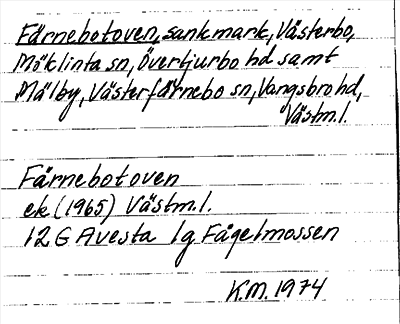 Färnebotoven, sankmark, Västerbo,
Möklinta sn, Övertjurbo hd samt
Mälby, Västerfärnebo sn, Vangsbro hd,
Västm.l.
Färnebotoven
ek (1965) Västm.l.
12G Avesta 1g Fågelmossen
K.M. 1974